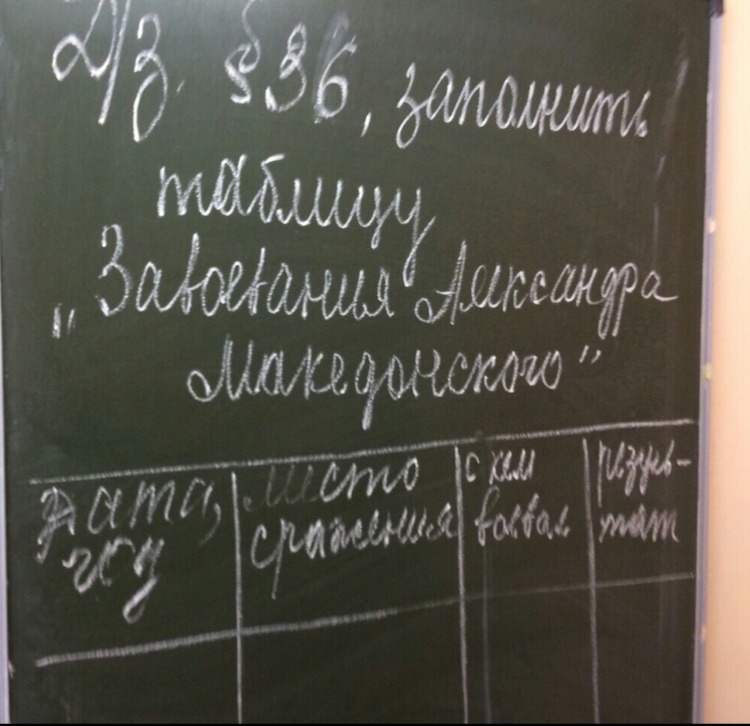 Д/З. §36, заполнить
таблицу
„Завоевания Александра
Македонского”
Дата, год
место сражения
с кем воевал
резуль-
тат